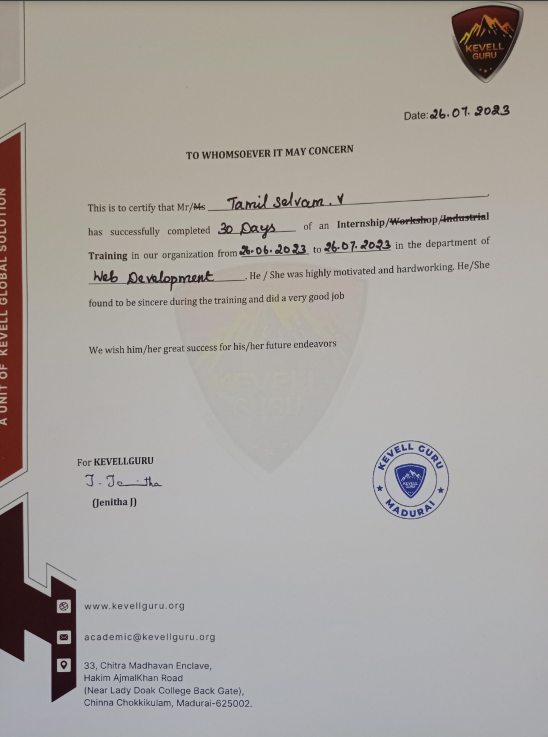 KEVELL
GURU
Date: 26.07.2023
TO WHOMSOEVER IT MAY CONCERN
This is to certify that Mr/Ms Tamil Selvam. V
has successfully completed 30 Days of an Internship/Workshop/Industrial
Training in our organization from 26.06.2023 to 26.07.2023 in the department of
Web Development. He / She was highly motivated and hardworking. He/She
found to be sincere during the training and did a very good job
We wish him/her great success for his/her future endeavors
A UNIT OF KEVELL GLOBAL SOLUTION
For KEVELLGURU
J. Jenitha
(Jenitha J)
KEVELL GURU
KEVELL
MADURAI
www.kevellguru.org
academic@kevellguru.org
33, Chitra Madhavan Enclave,
Hakim AjmalKhan Road
(Near Lady Doak College Back Gate),
Chinna Chokkikulam, Madurai-625002.